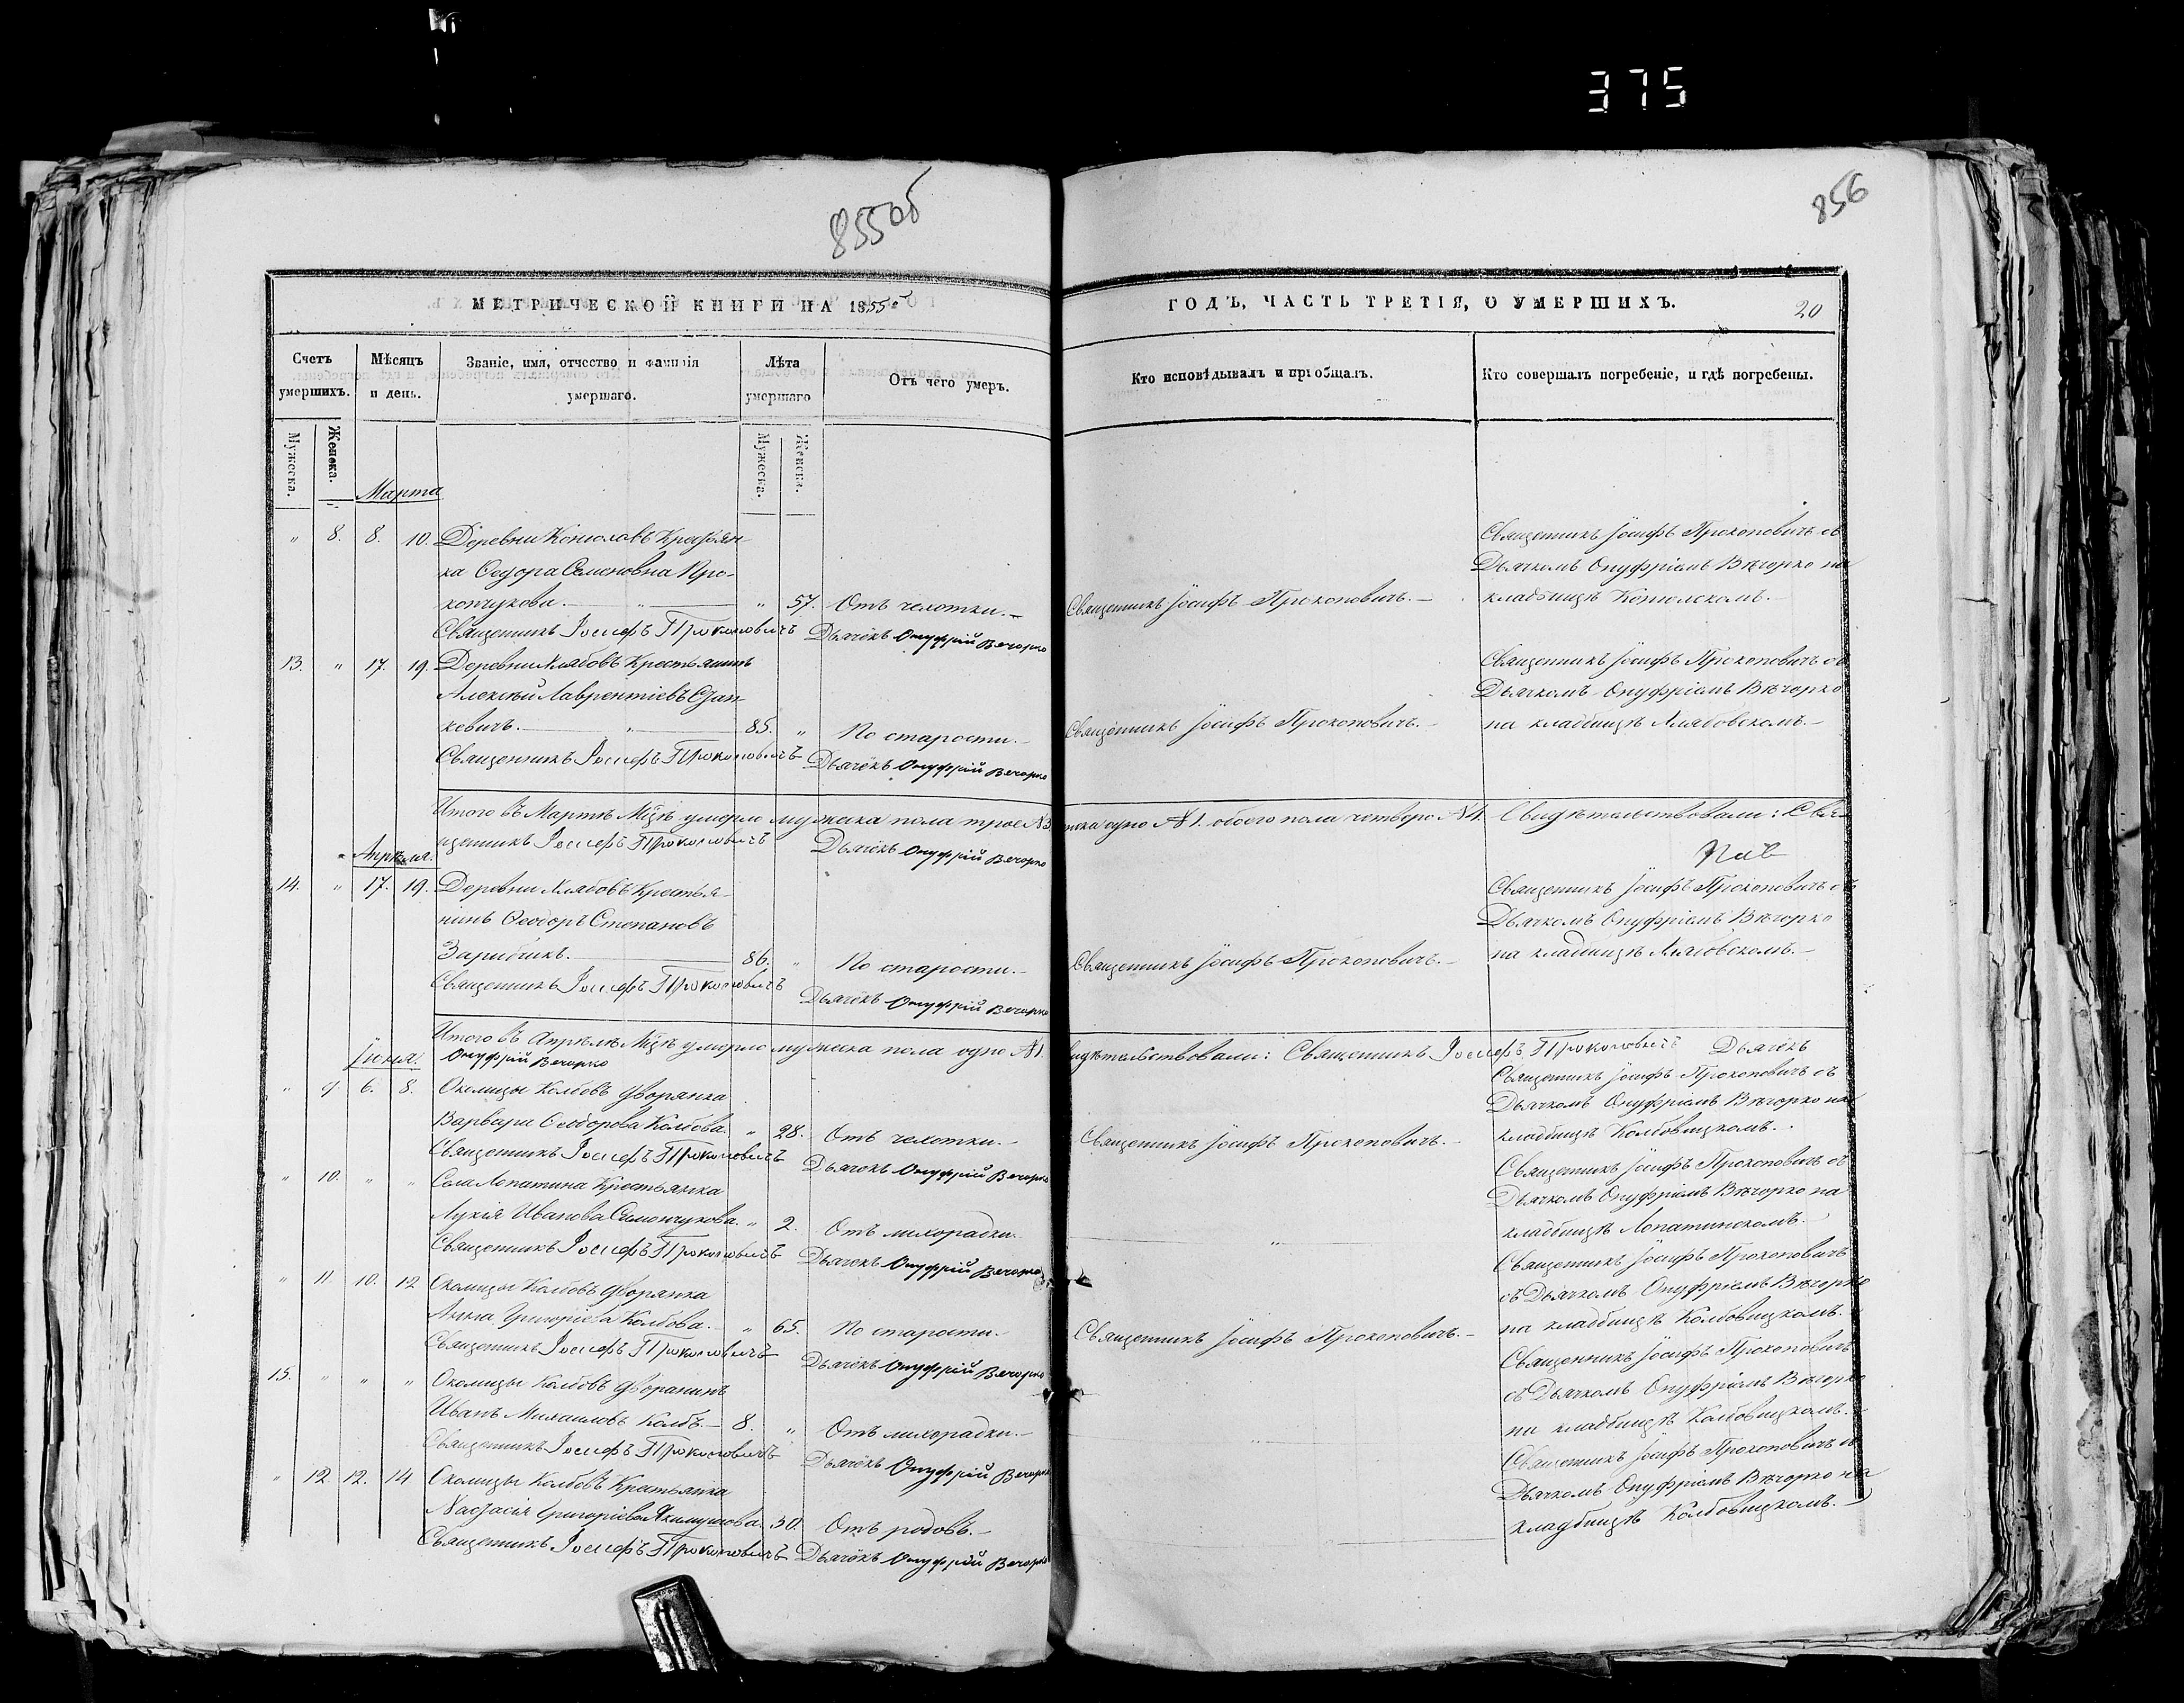 375
855об
856
МЕТРИЧЕСКОЙ КНИГИ НА 1855й
ГОДЪ, ЧАСТЬ ТРЕТІЯ, О УМЕРШИХЪ.
20
Счетъ умершихъ.
Мѣсяцъ и день.
Званіе, имя, отчество и фамилія умершаго.
Лѣта умершаго
Отъ чего умеръ.
Кто исповѣдывалъ и пріобщалъ.
Кто совершалъ погребеніе, и гдѣ погребены.
Мужеска.
Женска.
Мужеска.
Женска.
Марта
" 8. 8. 10. Деревни Крестьян-
Священникъ Іосифъ Прокоповичъ съ
ка Ѳедора Семеновна Про-
Дьячкомъ Онуфріемъ Вѣчорко на
копчукова. " 57. Отъ чехотки. Священникъ Іосифъ Прокоповичъ. кладбищѣ
Священникъ Іосифъ Прокоповичъ Дьячекъ Онуфрій Вечорко
13. " 17. 19. Деревни Хлябовъ Крестьянинъ
Священникъ Іосифъ Прокоповичъ съ
Алексѣй Лаврентіевъ Стан-
Дьячкомъ Онуфріемъ Вѣчорко
кевичъ. " 85. " По старости. Священникъ Іосифъ Прокоповичъ. на кладбищѣ Хлябовскомъ.
Священникъ Іосифъ Прокоповичъ Дьячекъ Онуфрій Вечорко
Итого въ Мартѣ Мцѣ умерло мужеска пола трое №3 женска одно №1. обоего пола четверо №4. Свидѣтельствовали: Свя-
щенникъ Іосифъ Прокоповичъ Дьячекъ Онуфрій Вечорко
Апрѣля.
14. " 17. 19. Деревни Хлябовъ Крестья-
Священникъ Іосифъ Прокоповичъ съ
нинъ Ѳеодоръ Степановъ
Дьячкомъ Онуфріемъ Вѣчорко
Зарибчикъ. 86. " По старости. Священникъ Іосифъ Прокоповичъ. на кладбищѣ Хлябовскомъ.
Священникъ Іосифъ Прокоповичъ Дьячекъ Онуфрій Вечорко
Итого въ Апрѣлѣ Мцѣ умерло мужеска пола одно №1. Свидѣтельствовали: Священникъ Іосифъ Прокоповичъ Дьячекъ
Онуфрій Вечорко
Іюня.
" 9. 6. 8. Околицы Колбовъ дворянка
Священникъ Іосифъ Прокоповичъ съ
Дьячкомъ Онуфріемъ Вѣчорко на
Варвара Ѳеодорова Колбова. " 28. Отъ чехотки. Священникъ Іосифъ Прокоповичъ. кладбищѣ Колбовицкомъ.
Священникъ Іосифъ Прокоповичъ Дьячекъ Онуфрій Вечорко
" 10. " " Села Лопатина Крестьянка
Священникъ Іосифъ Прокоповичъ съ
Дьячкомъ Онуфріемъ Вѣчорко на
Лукія Иванова Симончукова. " 2. Отъ лихорадки. " кладбищѣ Лопатинскомъ.
Священникъ Іосифъ Прокоповичъ Дьячекъ Онуфрій Вечорко
" 11 10. 12 Околицы Колбовъ дворянка
Священникъ Іосифъ Прокоповичъ
съ Дьячкомъ Онуфріемъ Вѣчорко
Анна Григоріева Колбова. " 65. По старости. Священникъ Іосифъ Прокоповичъ. на кладбищѣ Колбовицкомъ.
Священникъ Іосифъ Прокоповичъ Дьячекъ Онуфрій Вечорко
15. " " " Околицы Колбовъ дворянинъ
Священникъ Іосифъ Прокоповичъ
съ Дьячкомъ Онуфріемъ Вѣчорко
Иванъ Михаиловъ Колбъ. 8. " Отъ лихорадки. " на кладбищѣ Колбовицкомъ.
Священникъ Іосифъ Прокоповичъ Дьячекъ Онуфрій Вечорко
" 12. 12. 14 Околицы Колбовъ Крестьянка
Священникъ Іосифъ Прокоповичъ съ
Дьячкомъ Онуфріемъ Вѣчорко на
Настасія Григоріева 30. Отъ родовъ. кладбищѣ Колбовицкомъ.
Священникъ Іосифъ Прокоповичъ Дьячекъ Онуфрій Вечорко